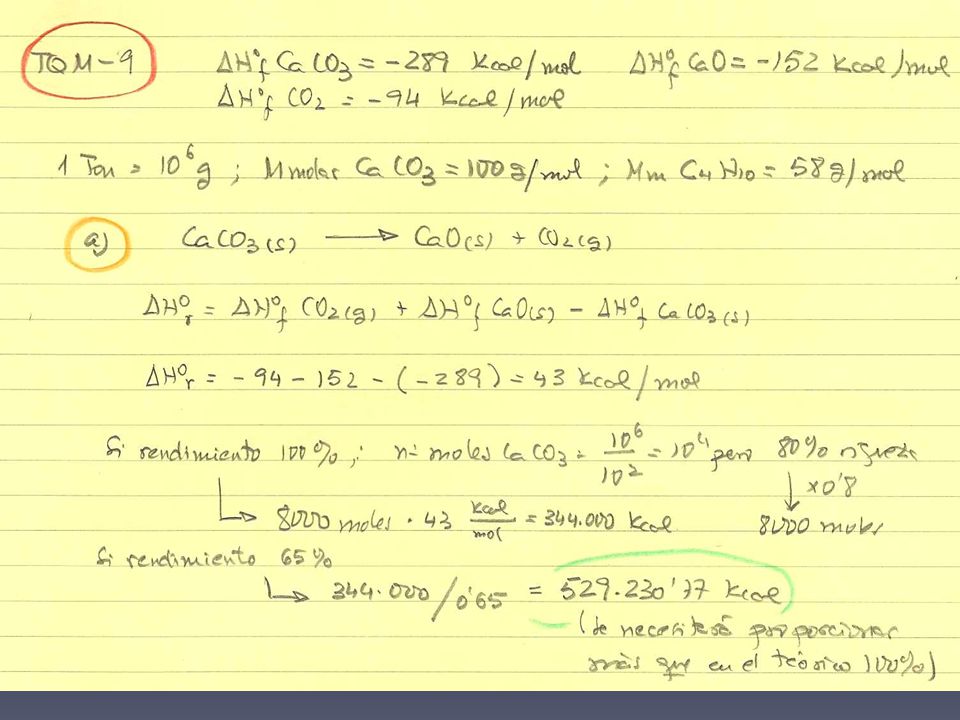 TQM-9 ΔHºf CaCO3 = -289 Kcal/mol ΔHºf CaO = -152 Kcal/mol
ΔHºf CO2 = -94 Kcal/mol
1 Ton = 10^6 g ; Mmolar CaCO3 = 100 g/mol ; Mm C4H10 = 58 g/mol
a) CaCO3(s) → CaO(s) + CO2(g)
ΔHºr = ΔHºf CO2(g) + ΔHºf CaO(s) - ΔHºf CaCO3(s)
ΔHºr = -94 - 152 - (-289) = 43 Kcal/mol
Si rendimiento 100%,: nº moles CaCO3 = 10^6/10^2 = 10^4 pero 80% riqueza
↓ x0'8
↳ 8000 moles · 43 Kcal/mol = 344.000 Kcal 8000 moles
Si rendimiento 65%
↳ 344.000/0'65 = 529.230'77 Kcal
(se necesitará proporcionar
más que en el teórico 100%)